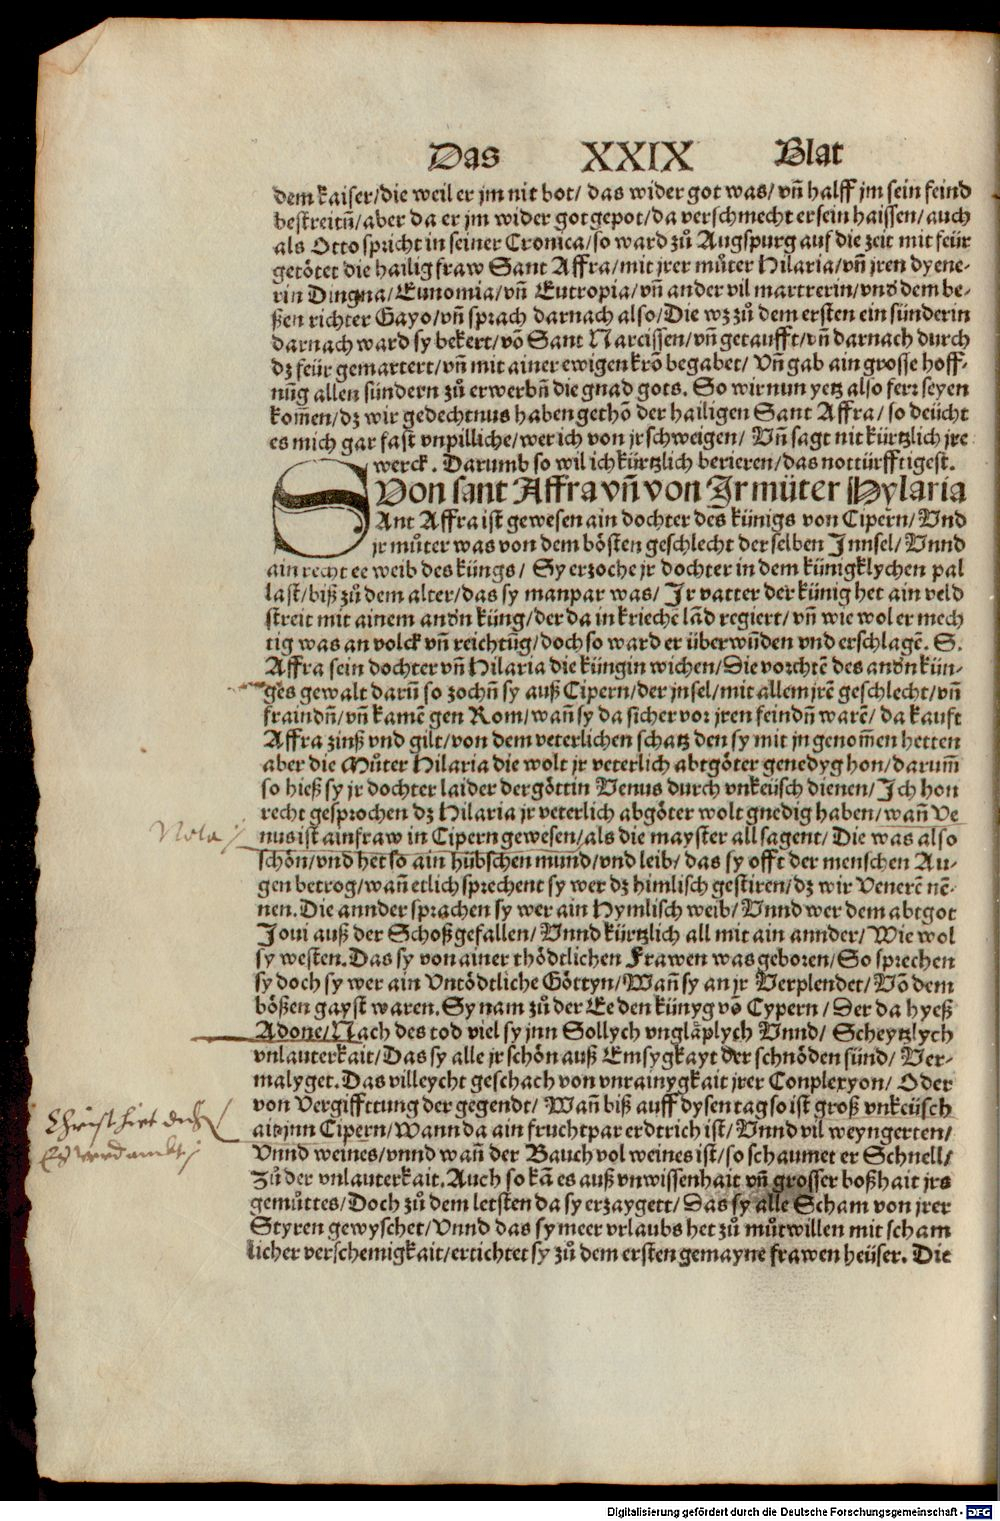 Das XXIX Blat
dem kaiser/die weil er jm nit bot/ das wider got was/ vñ halff jm sein feind
bestreitñ/aber da er jm wider got gepot/da verschmecht er sein haissen/auch
als Otto spricht in seiner Cronica/so ward zů Augspurg auf die zeit mit feür
getötet die hailig fraw Sant Affra/mit jrer můter Hilaria/vñ jren dyene-
rin Dingna/Eunomia/vñ Eutropia/vñ ander vil martrerin/vnd dem be-
ßen richter Gayo/vñ sprach darnach also/Die wz zů dem ersten ein sünderin
darnach ward sy bekert/võ Sant Narcissen/vñ getaufft/vñ darnach durch
dz feür gemartert/vñ mit ainer ewigen krõ begabet/ Vñ gab ain grosse hoff-
nũg allen sündern zů erwerbñ die gnad gots. So wir nun yetz also ferr seyen
kom̃en/dz wir gedechtnus haben gethõ der hailigen Sant Affra/ so deücht
es mich gar fast vnpilliche/wer ich von jr schweigen/ Vñ sagt nit kürtzlich jre
werck. Darumb so wil ich kürtzlich berieren/das nottürfftigest.
Von sant Affra vñ von Jr müter Hylaria
SAnt Affra ist gewesen ain dochter des künigs von Cipern/ Vnd
jr můter was von dem bösten geschlecht der selben Jnnsel/ Vnnd
ain recht ee weib des küngs/ Sy erzoche jr dochter in dem künigklychen pal
last/biß zů dem alter/das sy manpar was/ Jr vatter der künig het ain veld
streit mit ainem andn küng/der da in kriechē lãd regiert/vñ wie wol er mech
tig was an volck vñ reichtũg/doch so ward er überwũden vnd erschlagē. S.
Affra sein dochter vñ Hilaria die küngin wichen/Sie vorchtē des andn kün-
ges gewalt darũ so zochñ sy auß Cipern/der jnsel/mit allem jrē geschlecht/vñ
fraindñ/vñ kamē gen Rom/wañ sy da sicher vor jren feindñ warē/ da kauft
Affra zinß vnd gilt/von dem veterlichen schatz den sy mit jn genom̃en hetten
aber die Můter Hilaria die wolt jr veterlich abtgöter genedyg hon/darum̃
so hieß sy jr dochter laider der göttin Venus durch vnkeüsch dienen/Jch hon
recht gesprochen dz Hilaria jr veterlich abgöter wolt gnedig haben/wañ Ve
Nota
nus ist ain fraw in Cipern gewesen/als die mayster all sagent/ Die was also
schön/vnd het so ain hübschen mund/vnd leib/ das sy offt der menschen Au-
gen betrog/wañ etlich sprechent sy wer dz himlisch gestiren/dz wir Venerē nē-
nen. Die annder sprachen sy wer ain Hymlisch weib/ Vnnd wer dem abtgot
Joui auß der Schoß gefallen/ Vnnd kürtzlich all mit ain annder/ Wie wol
sy westen. Das sy von ainer thödtlichen Frawen was geboren/ So sprechen
sy doch sy wer ain Vntödtliche Göttyn/ Wañ sy an jr Verplendet/ Võ dem
bößen gayst waren. Sy nam zů der Ee den künyg võ Cypern / Der da hyeß
Adone/Nach des tod viel sy jnn Sollych vngläplych Vnnd/ Scheytzlych
vnlauterkait/Das sy alle jr schön auß Emsygkayt der schnöden sünd/ Ver-
malyget. Das villeycht geschach von vnrainygkait jrer Conplexyon/ Oder
von Vergiffttung der gegendt/ Wañ biß auff dysen tag so ist groß vnkeüsch
ait jnn Cipern/Wann da ain fruchtpar erdtrich ist/ Vnnd vil weyngerten/
Vnnd weines/vnnd wañ der Bauch vol weines ist/so schaumet er Schnell/
Zů der vnlauterkait. Auch so kã es auß vnwissenhait vñ grosser boßhait jrs
gemůttes/Doch zů dem letsten da sy erzaygett/ Das sy alle Scham von jrer
Styren gewyschet/Vnnd das sy meer vrlaubs het zů můtwillen mit scham
licher verschemigkait/ertichtet sy zů dem ersten gemayne frawen heüser. Die
Digitalisierung gefördert durch die Deutsche Forschungsgemeinschaft - DFG